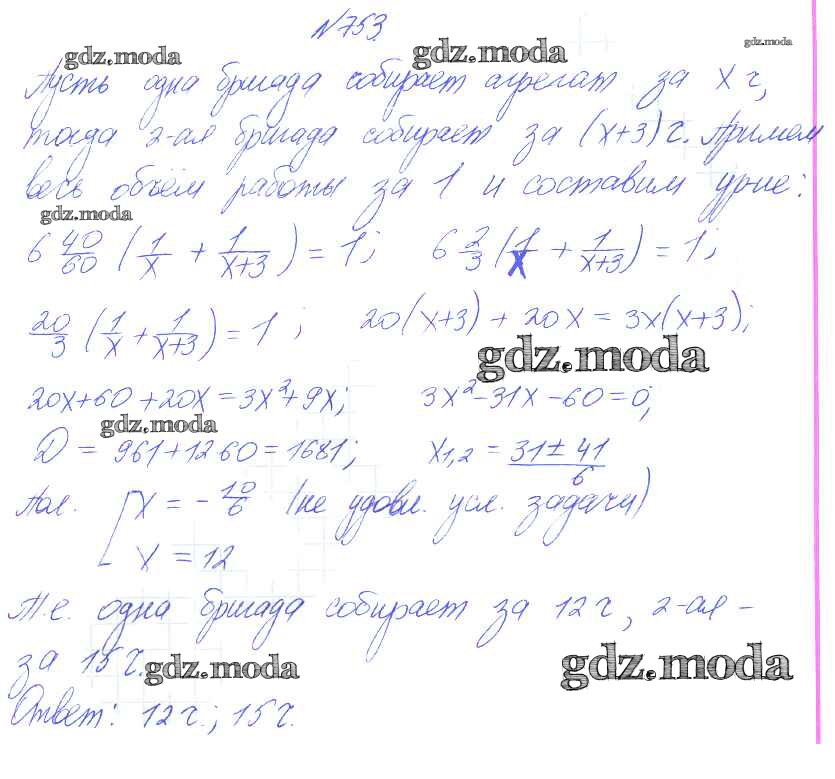 №753.
gdz.moda gdz.moda gdz.moda
Пусть одна бригада собирает агрегат за x ч,
тогда 2-ая бригада собирает за (x+3) ч. Примем
весь объём работы за 1 и составим ур-ие:
gdz.moda
6 40/60 (1/x + 1/(x+3)) = 1; 6 2/3 (1/x + 1/(x+3)) = 1;
20/3 (1/x + 1/(x+3)) = 1; 20(x+3) + 20x = 3x(x+3);
gdz.moda
20x+60+20x=3x²+9x; 3x²-31x-60=0;
gdz.moda
D = 961+1260=1681; x1,2 = (31±41)/6
Пол. [x = -10/6 (не удовл. усл. задачи)
x = 12
Т.е. одна бригада собирает за 12 ч, 2-ая -
за 15 ч.
gdz.moda gdz.moda
Ответ: 12 ч.; 15 ч.